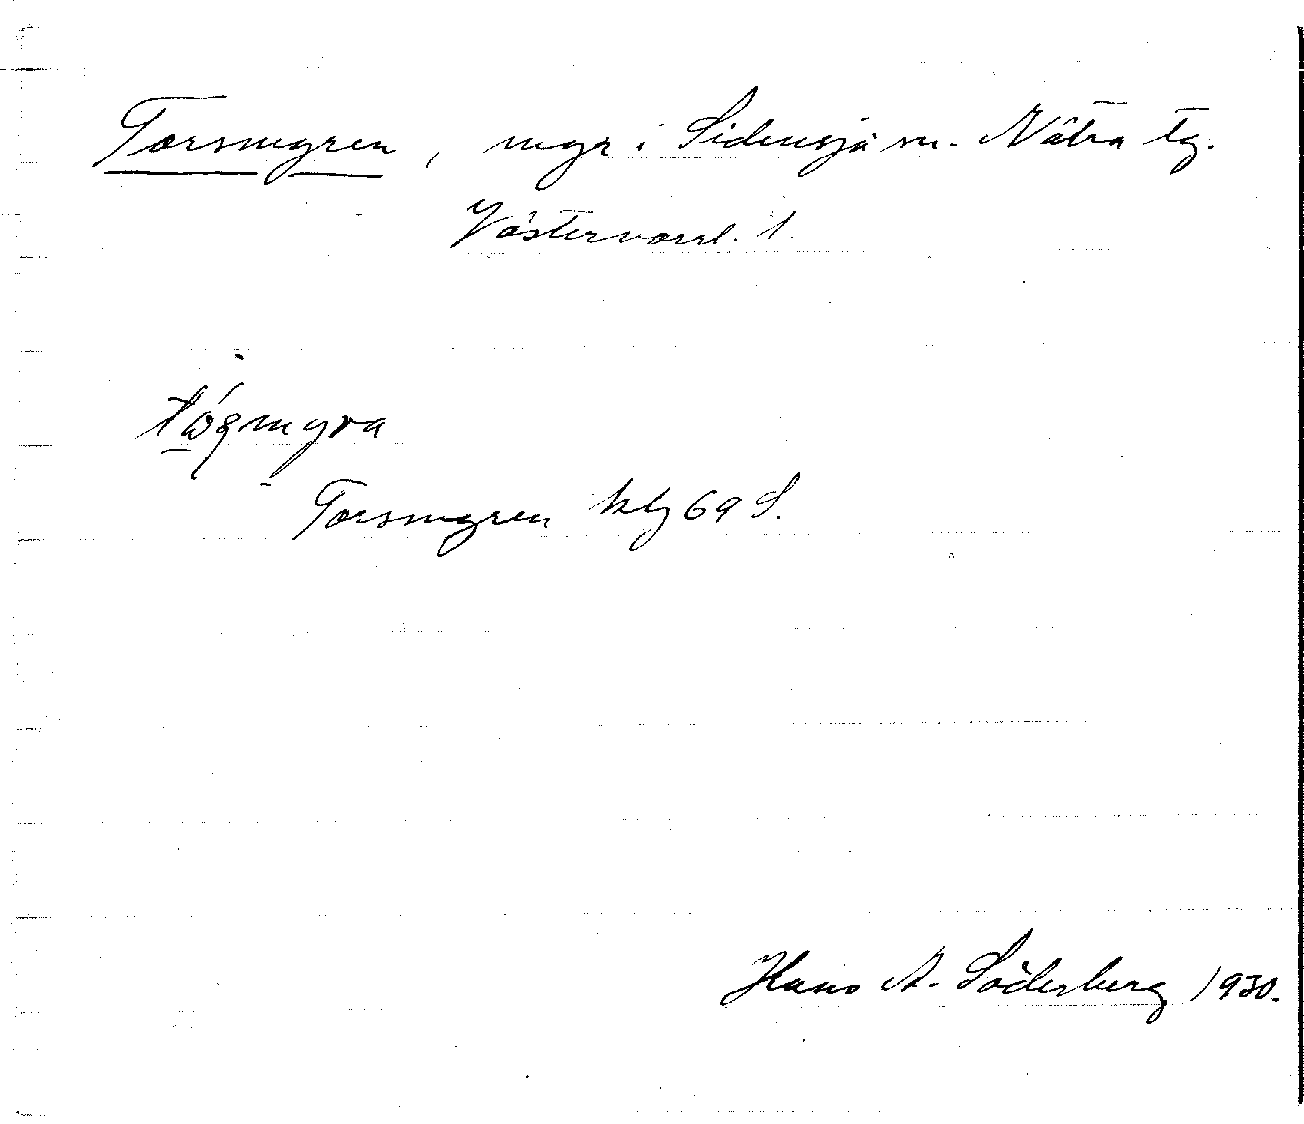 Torsmyren, myr i Sidensjö sn. Nätra tg.
Västernorrl. l.
Torsmyren kbl 69 S.
Hans A. Söderberg 1930.